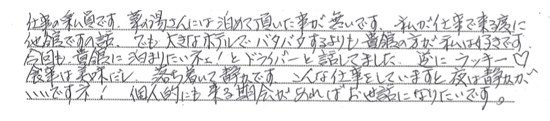 仕事の乗員です。菜の湯さんには泊めて頂いた事が無いです。私が仕事で来る度に
他館ですの話。でも大きなホテルでバタバタするよりも貴館の方が私は好きです。
今回も貴館に泊まりたいネェ!とドライバーと話してました。逆にラッキー♡
食事は美味だし 落ち着いて静かです。こんな仕事をしていますと夜は静かが
いいですネ! 個人的にも来る期会があればお世話になりたいです。